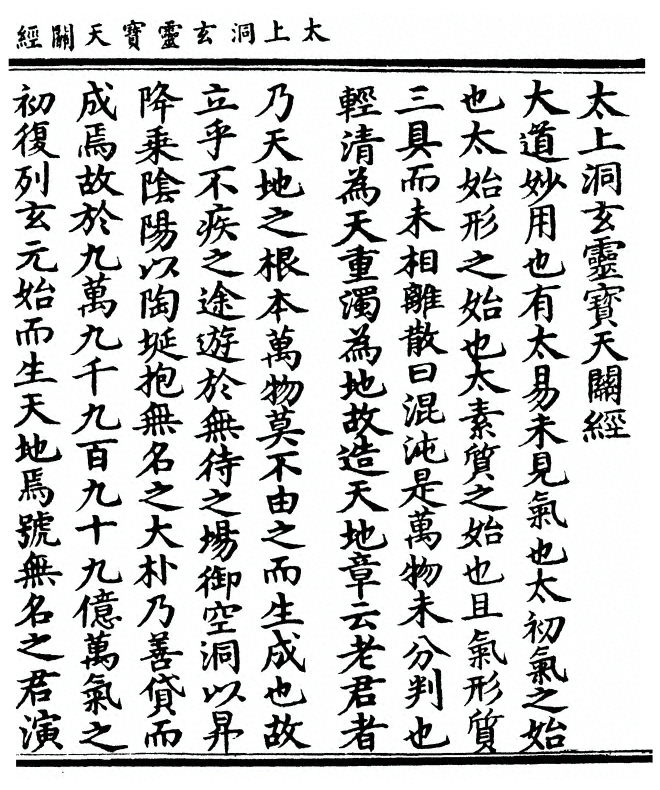 太上洞玄靈寶天關經
太上洞玄靈寶天關經
大道妙用也有太易未見氣也太初氣之始
也太始形之始也太素質之始也且氣形質
三具而未相離散曰混沌是萬物未分判也
輕清為天重濁為地故造天地章云老君者
乃天地之根本萬物莫不由之而生成也故
立乎不疾之途遊於無待之場御空洞以昇
降乘陰陽以陶埏抱無名之大朴乃善貸而
成焉故於九萬九千九百九十九億萬氣之
初復列玄元始而生天地焉號無名之君演